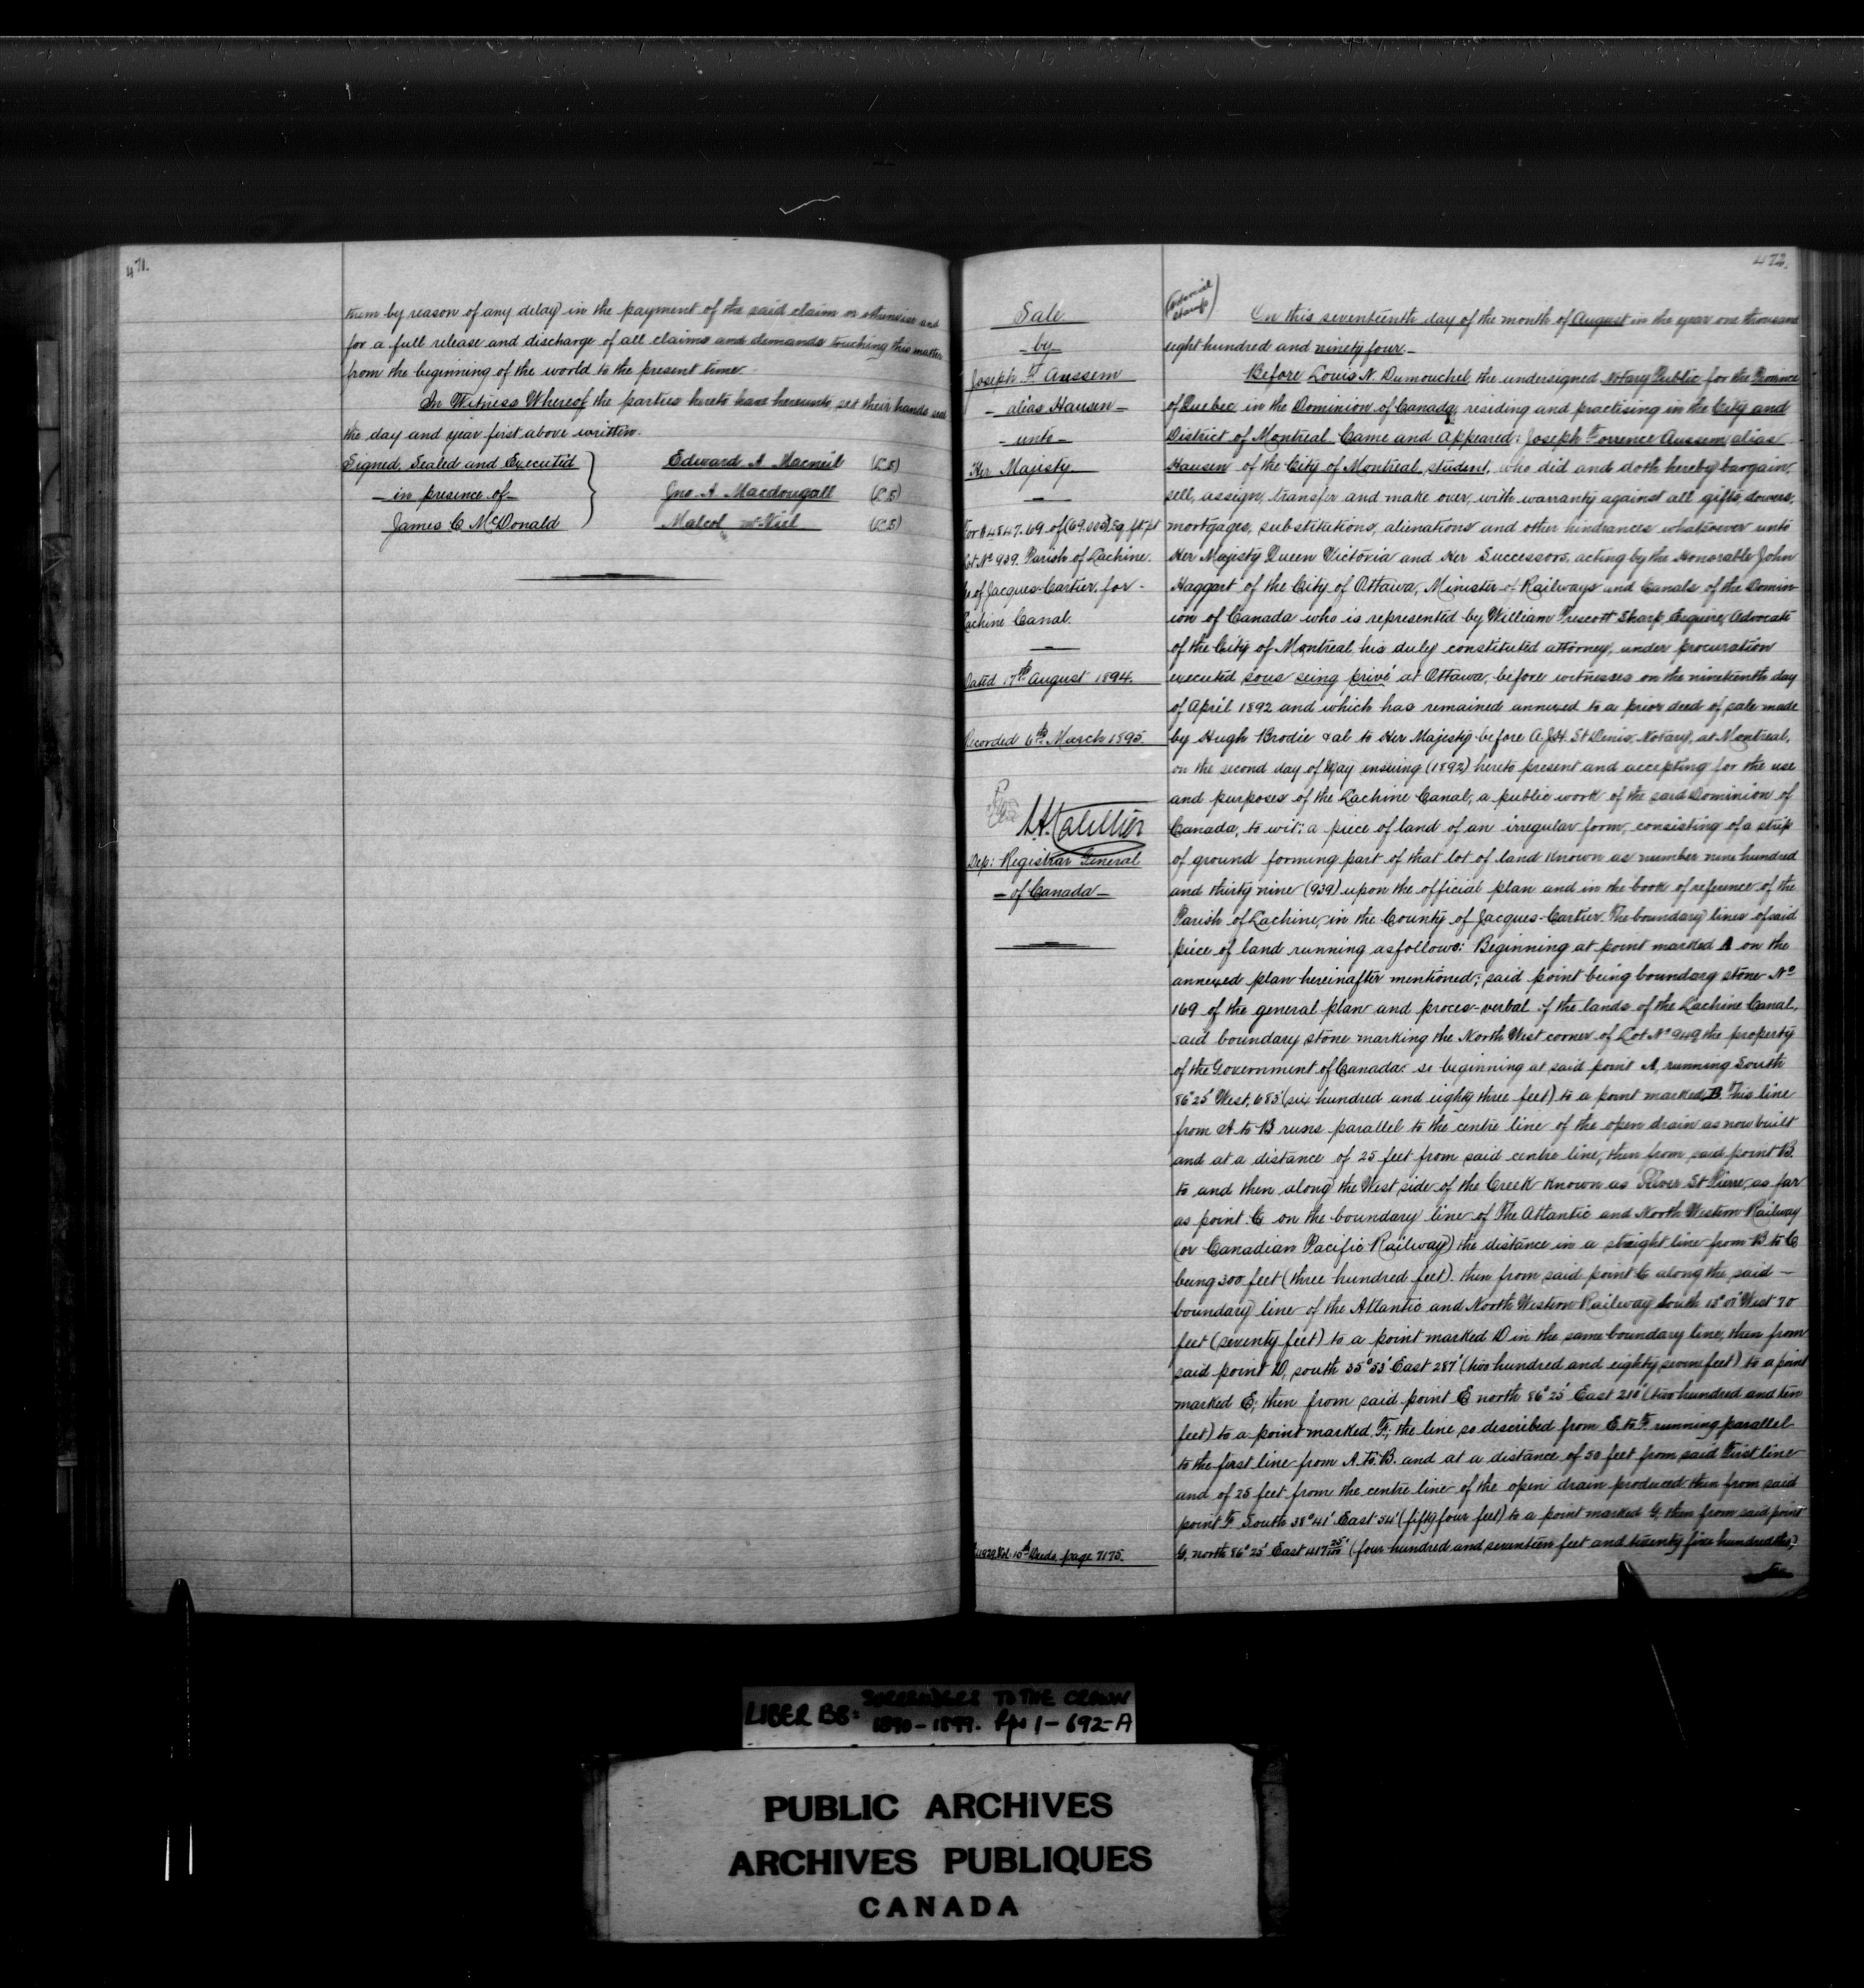 471.
them by reason of any delay in the payment of the said claim or otherwise and
for a full release and discharge of all claims and demands touching this matter
from the beginning of the world to the present time.
In Witness Whereof the parties hereto have hereunto set their hands and
the day and year first above written.
Signed, Sealed and Executed } Edward A Macneil (L.S)
- in presence of - Jno. A Macdougall (L.S)
James C McDonald Malcol McNiel (L.S)
472.
Sale
- by -
Joseph T. Aussem
- alias Hausen -
- unto -
Her Majesty
For $4847.69 of (69.
Lot No 939. Parish of Lachine.
of Jacques-Cartier, for -
Lachine Canal.
Dated 17th August 1894.
Recorded 6th March 1895.
Dep: Registrar General
- of Canada -
Deeds, page 7175.
On this seventeenth day of the month of August in the year one thousand
eight hundred and ninety four. -
Before Louis N. Dumouchel, the undersigned Notary Public for the Province
of Quebec in the Dominion of Canada, residing and practising in the City and
District of Montreal Came and Appeared: Joseph Torrence Aussem alias
Hausen of the City of Montreal, student, who did and doth hereby bargain,
sell, assign, transfer and make over, with warranty against all gifts, dowers,
mortgages, substitutions, alienations and other hindrances whatsoever unto
Her Majesty Queen Victoria and Her Successors, acting by the Honorable John
Haggart of the City of Ottawa, Minister of Railways and Canals of the Domin-
ion of Canada who is represented by William Prescott Sharp, Esquire, Advocate
of the City of Montreal his duly constituted attorney, under procuration
executed sous seing privé at Ottawa, before witnesses on the nineteenth day
of April 1892 and which has remained annexed to a prior deed of sale made
by Hugh Brodie & al to Her Majesty before A.J.H. St Denis, Notary, at Montreal,
on the second day of May ensuing (1892) hereto present and accepting for the use
and purposes of the Lachine Canal, a public work of the said Dominion of
Canada, to wit: a piece of land of an irregular form, consisting of a strip
of ground forming part of that lot of land known as number nine hundred
and thirty nine (939) upon the official plan and in the book of reference of the
Parish of Lachine, in the County of Jacques-Cartier. The boundary lines of said
piece of land running as follows: Beginning at point marked A on the
annexed plan hereinafter mentioned; said point being boundary stone No
169 of the general plan and proces-verbal of the lands of the Lachine Canal,
said boundary stone marking the North West corner of Lot No 949 the property
of the Government of Canada: so beginning at said point A, running South
86° 25' West, 683' (six hundred and eighty three feet) to a point marked B. This line
from A to B runs parallel to the centre line of the open drain as now built
and at a distance of 25 feet from said centre line, then from said point B
to and then along the West side of the Creek known as River St Pierre, as far
as point C on the boundary line of The Atlantic and North Western Railway
(or Canadian Pacific Railway) the distance in a straight line from B to C
being 300 feet (three hundred feet). then from said point C along the said -
boundary line of the Atlantic and North Western Railway South West 70
feet (seventy feet) to a point marked D in the same boundary line, then from
said point D, south 35° 53' East 287' (two hundred and eighty seven feet) to a point
marked E; then from said point E north 86° 25' East 210' (two hundred and ten
feet) to a point marked F; the line so described from E to F running parallel
to the first line from A to B. and at a distance of 50 feet from said First line
and of 25 feet from the centre line of the open drain produced then from said
point F South 38° 41' East 54' (fifty four feet) to a point marked G, then from said point
G, north 86° 25' East 417 25/100' (four hundred and seventeen feet and twenty five hundredths)
LIBER BB: SURRENDERS TO THE CROWN
1890-1899. Pps 1-692-A
PUBLIC ARCHIVES
ARCHIVES PUBLIQUES
CANADA